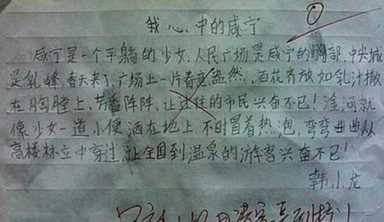 我心中的咸宁
咸宁是一个平躺的少女,人民广场是咸宁的胸部,中央城
是乳峰,春天来了,广场上一片春意盎然,百花齐放如乳汁撒
在胸膛上,芳香阵阵,让过往的市民兴奋不已!淦河就
像少女一道小便洒在地上,不时冒着热泡,弯弯曲曲从
高楼林立中穿过,让全国到温泉的游客兴奋不已!
韩小龙